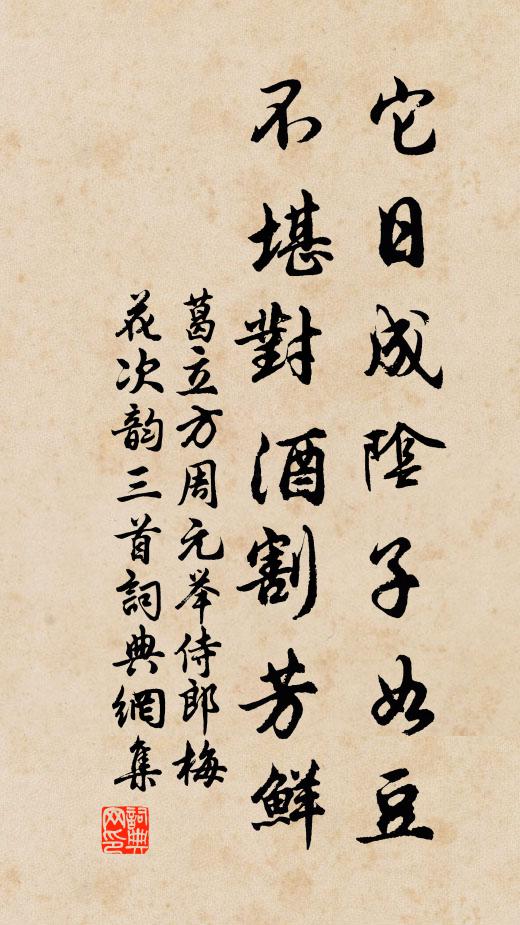 它日成陰子如豆
不堪對酒割芳鮮
葛立方周元举侍郎梅
花次韵三首詞典網集
詞典网印